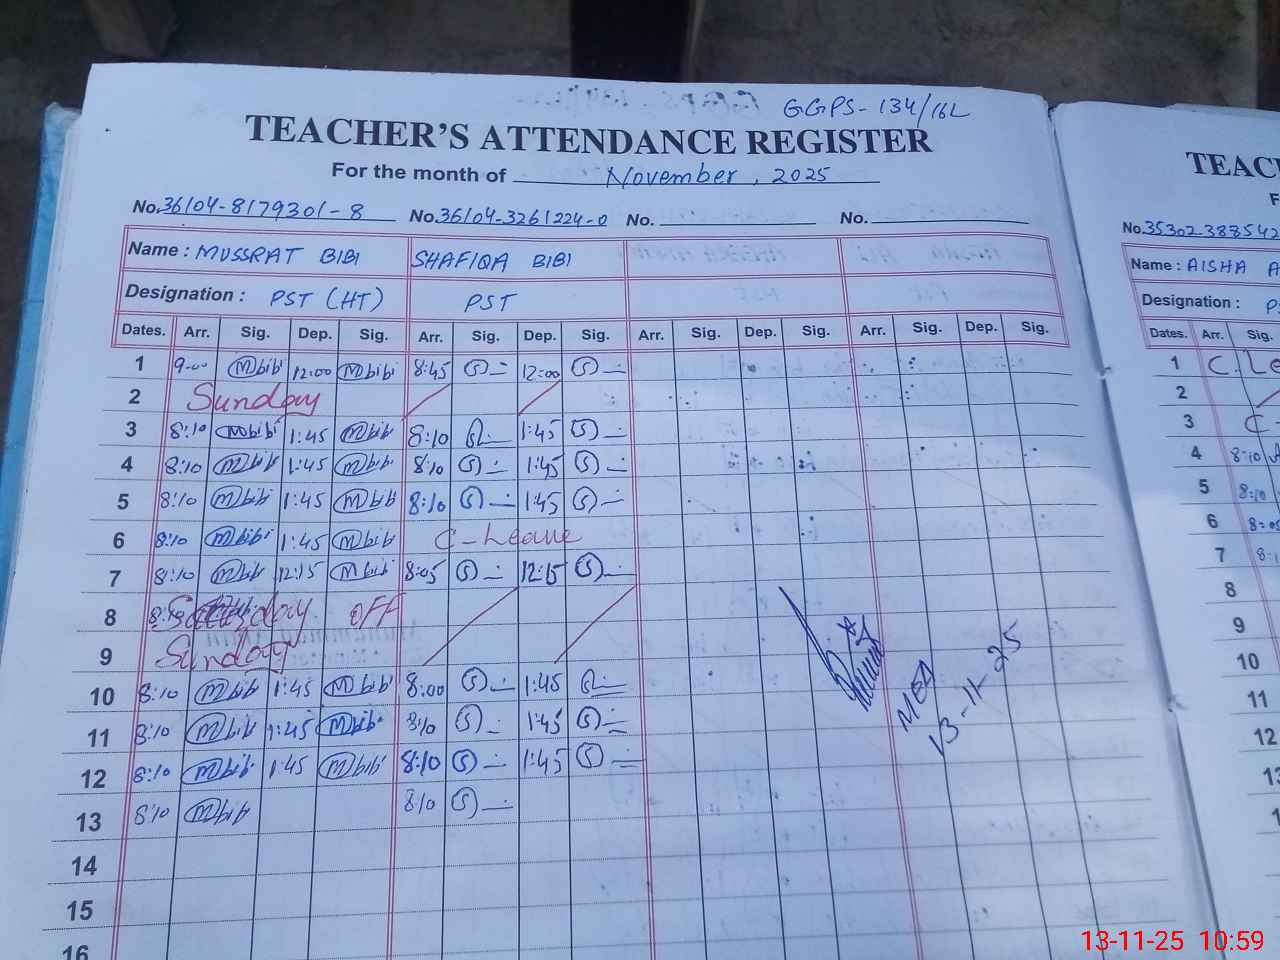 GGPS-134/16L
TEACHER'S ATTENDANCE REGISTER
For the month of November, 2025
No. 36104-8179301-8 No. 36104-3261224-0 No. No.
Name : MUSSRAT BIBI SHAFIQA BIBI
Designation : PST (HT) PST
Dates. Arr. Sig. Dep. Sig. Arr. Sig. Dep. Sig. Arr. Sig. Dep. Sig. Arr. Sig. Dep. Sig.
1 9:00 Mbibi 12:00 Mbibi 8:45 S 12:00 S
2 Sunday
3 8:10 Mbibi 1:45 Mbibi 8:10 1:45 S
4 8:10 Mbibi 1:45 Mbibi 8:10 S 1:45 S
5 8:10 Mbibi 1:45 Mbibi 8:10 S 1:45 S
6 8:10 Mbibi 1:45 Mbibi C-Leave
7 8:10 Mbibi 12:15 Mbibi 8:05 S 12:15 S
8 8:10 Saturday OFF
9 Sunday
10 8:10 Mbibi 1:45 Mbibi 8:00 S 1:45
11 8:10 Mbibi 1:45 Mbibi 8:10 S 1:45 S
12 8:10 Mbibi 1:45 Mbibi 8:10 S 1:45 S
13 8:10 Mbibi 8:10 S
14
15
16
MEA
13-11-25
TEAC
F
No. 35302-388542
Name : AISHA A
Designation : P
Dates. Arr. Sig.
1 C.Le
2
3 C-
4 8:10
5 8:10
6 8:05
7 8:1
8
9
10
11
12
13
1
13-11-25 10:59